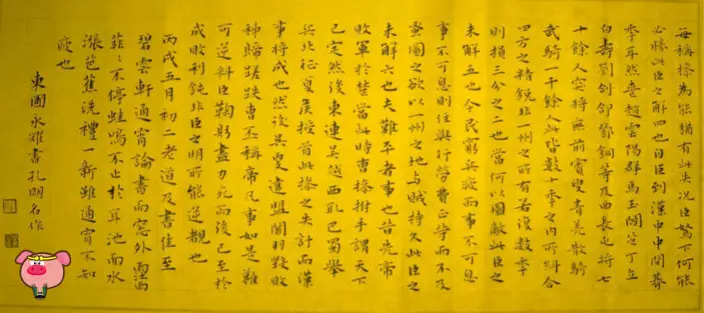 每稱操為能猶有此失況臣駑下何能
必勝此臣之解四也自臣到漢中中間朞
年耳然喪趙雲陽群馬玉閻芝丁立
白壽劉郃鄧銅等及曲長屯將七
十餘人突將無前賨叟青羌散騎
武騎一千餘人此皆數十年之內所糾合
四方之精銳非一州之所有若復數年
則損三分之二也當何以圖敵此臣之
未解五也今民窮兵疲而事不可息
事不可息則住與行勞費正等而不及
蚤圖之欲以一州之地与賊持久此臣之
未解六也夫難平者事也昔先帝
敗軍於楚當此時曹操拊手謂天下
已定然後東連吳越西取巴蜀舉
兵北征夏侯授首此操之失計而漢
事將成也然後吳更違盟關羽毀敗
秭歸蹉跌曹丕稱帝凡事如是難
可逆料臣鞠躬盡力死而後已至於
成敗利鈍非臣之明所能逆覩也
丙戌五月初二老道及書佳至
碧雲軒通宵論書而窗外靈雨
菲菲不停蛙鳴不止於耳池面水
漲芭蕉洗禮一新雖通宵不知
疲也
東國永雄書孔明名作